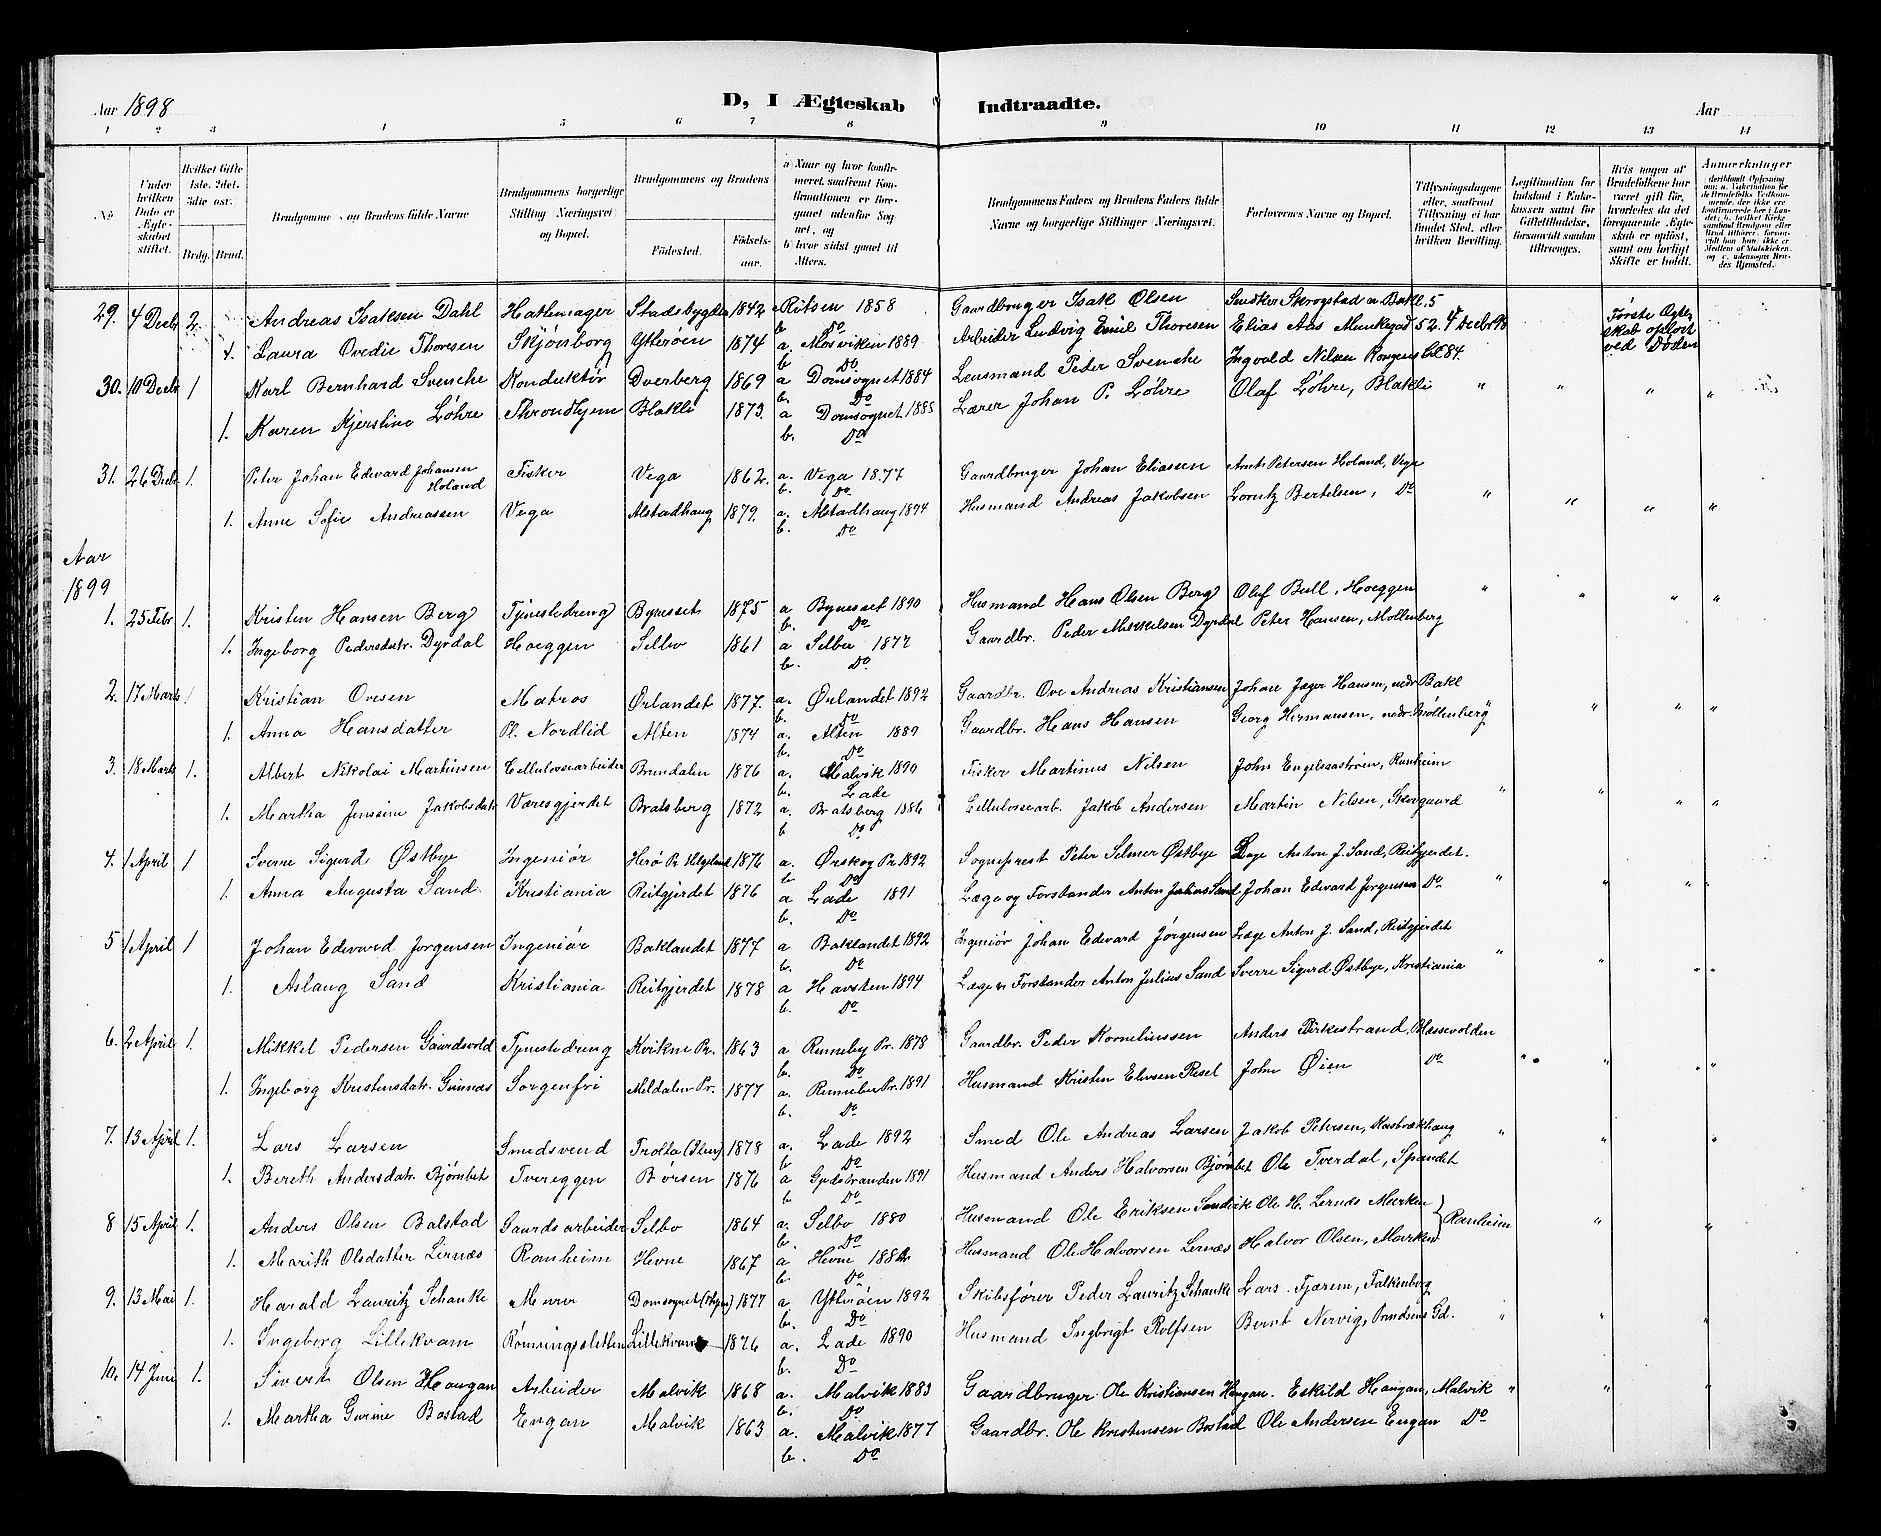 Aar 1898
D, I Ægteskab Indtraadte.
Aar
1 2 3 4 5 6 7 8 9 10 11 12 13 14
No
Under hvilken Dato er Ægteskabet stiftet.
Hvilket Gifte 1ste, 2det, 3die osv.
Brdg. Brud.
Brudgommens og Brudens fulde Navne
Brudgommens borgerlige Stilling (Næringsvei) og Bopæl.
Brudgommens og Brudens
Fødested.
Fødselsaar.
a) Naar og hvor konfirmeret, saafremt Konfirmationen er foregaaet udenfor Sognet, og
b) hvor sidst gaaet til Alters.
Brudgommens Faders og Brudens Faders fulde Navne og borgerlige Stillinger (Næringsvei).
Forlovernes Navne og Bopæl.
Tillysningsdagene eller, saafremt Tillysning ei har fundet Sted, efter hvilken Bevilling.
Legitimation for Indskud i Enkekassen samt for Giftetilladelse, forsaavidt saadan tiltrænges.
Hvis nogen af Brudefolkene har været gift før, hvorledes da det foregaaende Ægteskab er opløst, samt om lovligt Skifte er holdt.
Anmerkninger
29. 4 Decbr 2. Andreas Isaksen Dahl Hattemager Stadsbygden 1842 Ritsen 1858 Gaardbruger Isak Olsen Snedker Skrogstad n Bakl. 5 Første Ægte-
b. Do skab opløst
1. Laura Ovedie Thoresen Skjønborg Ytterøen 1874 a. Mosviken 1889 Arbeider Ludvig Emil Thoresen Elias Aas Munkegad 52. 4 Decbr 98 ved Døden
b Do
30. 10 Decbr 1 Karl Bernhard Svenche Konduktør Dverberg 1869 a Domsognet 1884 Lensmand Peder Svenche Ingvald Nilsen Kongens Gd 84.
b. Do
1. Karen Kjerstine Løhre Throndhjem Blakli 1873. a Domsognet 1888 Lærer Johan P. Løhre Olaf Løhre, Blakli " " " "
b. Do
31. 26 Decbr 1. Peter Johan Edvard Johansen Holand Fisker Vega 1862. a. Vega 1877 Gaardbruger Johan Eliassen Arnt Petersen Holand, Vega
b. Do
1. Anne Sofie Andreassen Vega Alstadhaug 1879. a. Alstadhaug 1894 Husmand Andreas Jakobsen Lorntz Bertelsen, Do " " " "
b. Do
Aar
1899
1. 25 Febr 1. Kristen Hansen Berg Tjenestedreng Bynesset 1875 a Bynesset 1890 Husmand Hans Olsen Berg Oluf Bull, Hoeggen " " " "
b. Do
1. Ingeborg Pedersdatr. Dyrdal Hoeggen Selbo 1861 a Selbu 1877 Gaardbr. Peder Mikkelsen Dyrdal Peter Hansen, Mollenberg
b. Do
2. 17 Marts 1 Kristian Ovesen Matros Ørlandet 1877. a. Ørlandet 1892 Gaardbr. Ove Andreas Kristiansen Johan Jæger Hansen, nedr Bakl
b. Do
1. Anna Hansdatter Pl. Nordlid Alten 1874 a. Alten 1889 Gaardbr. Hans Hansen Georg Hermansen, nedr. Møllenberg " " " "
b. Do
3. 18 Marts 1. Albert Nikolai Martinsen Cellulosearbeider Brundalen 1876 a. Malvik 1890 Fisker Martinus Nilsen John Engelsaastrøen, Ranheim
b. Lade
1. Martha Jenssine Jakobsdatr Væresgjerdet Bratsberg 1872 a. Bratsberg 1886 Cellulosearb. Jakob Andersen Martin Nilsen, Skovgaard " " " "
b Do
4. 1 April 1 Sverre Sigurd Østbye Ingeniør Herø Pr. Helgeland 1876 a. Ørskog Pr. 1892 Sogneprest Peter Selmer Østbye Læge Anton J. Sand, Reitgjerdet.
b Do
1. Anna Augusta Sand Kristiania Reitgjerdet 1876 a Lade 1891 Læge og Forstander Anton Julius Sand Johan Edvard Jørgensen Do " " " "
b. Do
5 1 April 1 Johan Edvard Jørgensen Ingeniør Baklandet 1877 a Baklandet 1892 Ingeniør Johan Edvard Jørgensen Læge Anton J. Sand, Reitgjerdet
b. Do
1. Aslaug Sand Kristiania Reitgjerdet 1878 a Havsten 1894 Læge og Forstander Anton Julius Sand Sverre Sigurd Østbye, Kristiania " " " "
b. Do
6. 2 April 1. Mikkel Pedersen Gaardsvold Tjenestedreng Kvikne Pr. 1863 a Rennebu Pr. 1878 Gaardbr. Peder Korneliussen Anders Birkestrand, Blæssevolden
b. Do
1. Ingeborg Kristensdatr. Grinnæs Sorgenfri Meldalen Pr. 1877 a. Rennebu Pr. 1891 Husmand Kristen Elvesen Resel John Øien Do " " " "
b. Do
7. 13 April 1. Lars Larsen Smedsvend Trolla (Ilen) 1878 a. Lade 1892 Smed Ole Andreas Larsen Jakob Petersen, Karsbrækhaug " " "
b Do
1. Bereth Andersdatr. Bjørnbet Tvereggen Børsen 1876 a Gjedstranden 1891 Husmand Anders Halvorsen Bjørnbet Ole Tverdal, Spandet
b Do
8 15 April 1. Anders Olsen Balstad Gaardsarbeider Selbo 1864 a. Selbo 1880 Husmand Ole Eriksen Sandvik Ole H. Lernæs Marken } Ranheim " "
b. Do
1. Marith Olsdatter Lernæs Ranheim Hevne 1867 a Hevne 1882 Husmand Ole Halvorsen Lernæs Halvor Olsen, Marken
b. Do
9. 13 Mai 1. Harald Lauritz Schanke Murer Domsognet (Thjem) 1877 a. Ytterøen 1892 Skibsfører Peder Lauritz Schanke Lars Fjærem, Falkenberg
b. Do
1. Ingeborg Lillekvam Rønningssletten Lillekvam 1876 a. Lade 1890 Husmand Ingbrigt Rolfsen Bernt Nervig, Gd. " " "
b. Do
10. 14 Juni 1. Sivert Olsen Haugan Arbeider Malvik 1868 a. Malvik 1883 Gaardbruger Ole Kristiansen Haugan. Eskild Haugan, Malvik " " "
b. Do
1. Martha Gurine Bostad Engan Malvik 1863 a. Malvik 1877 Gaardbr. Ole Kristensen Bostad Ole Andersen Engan Do
b. Do